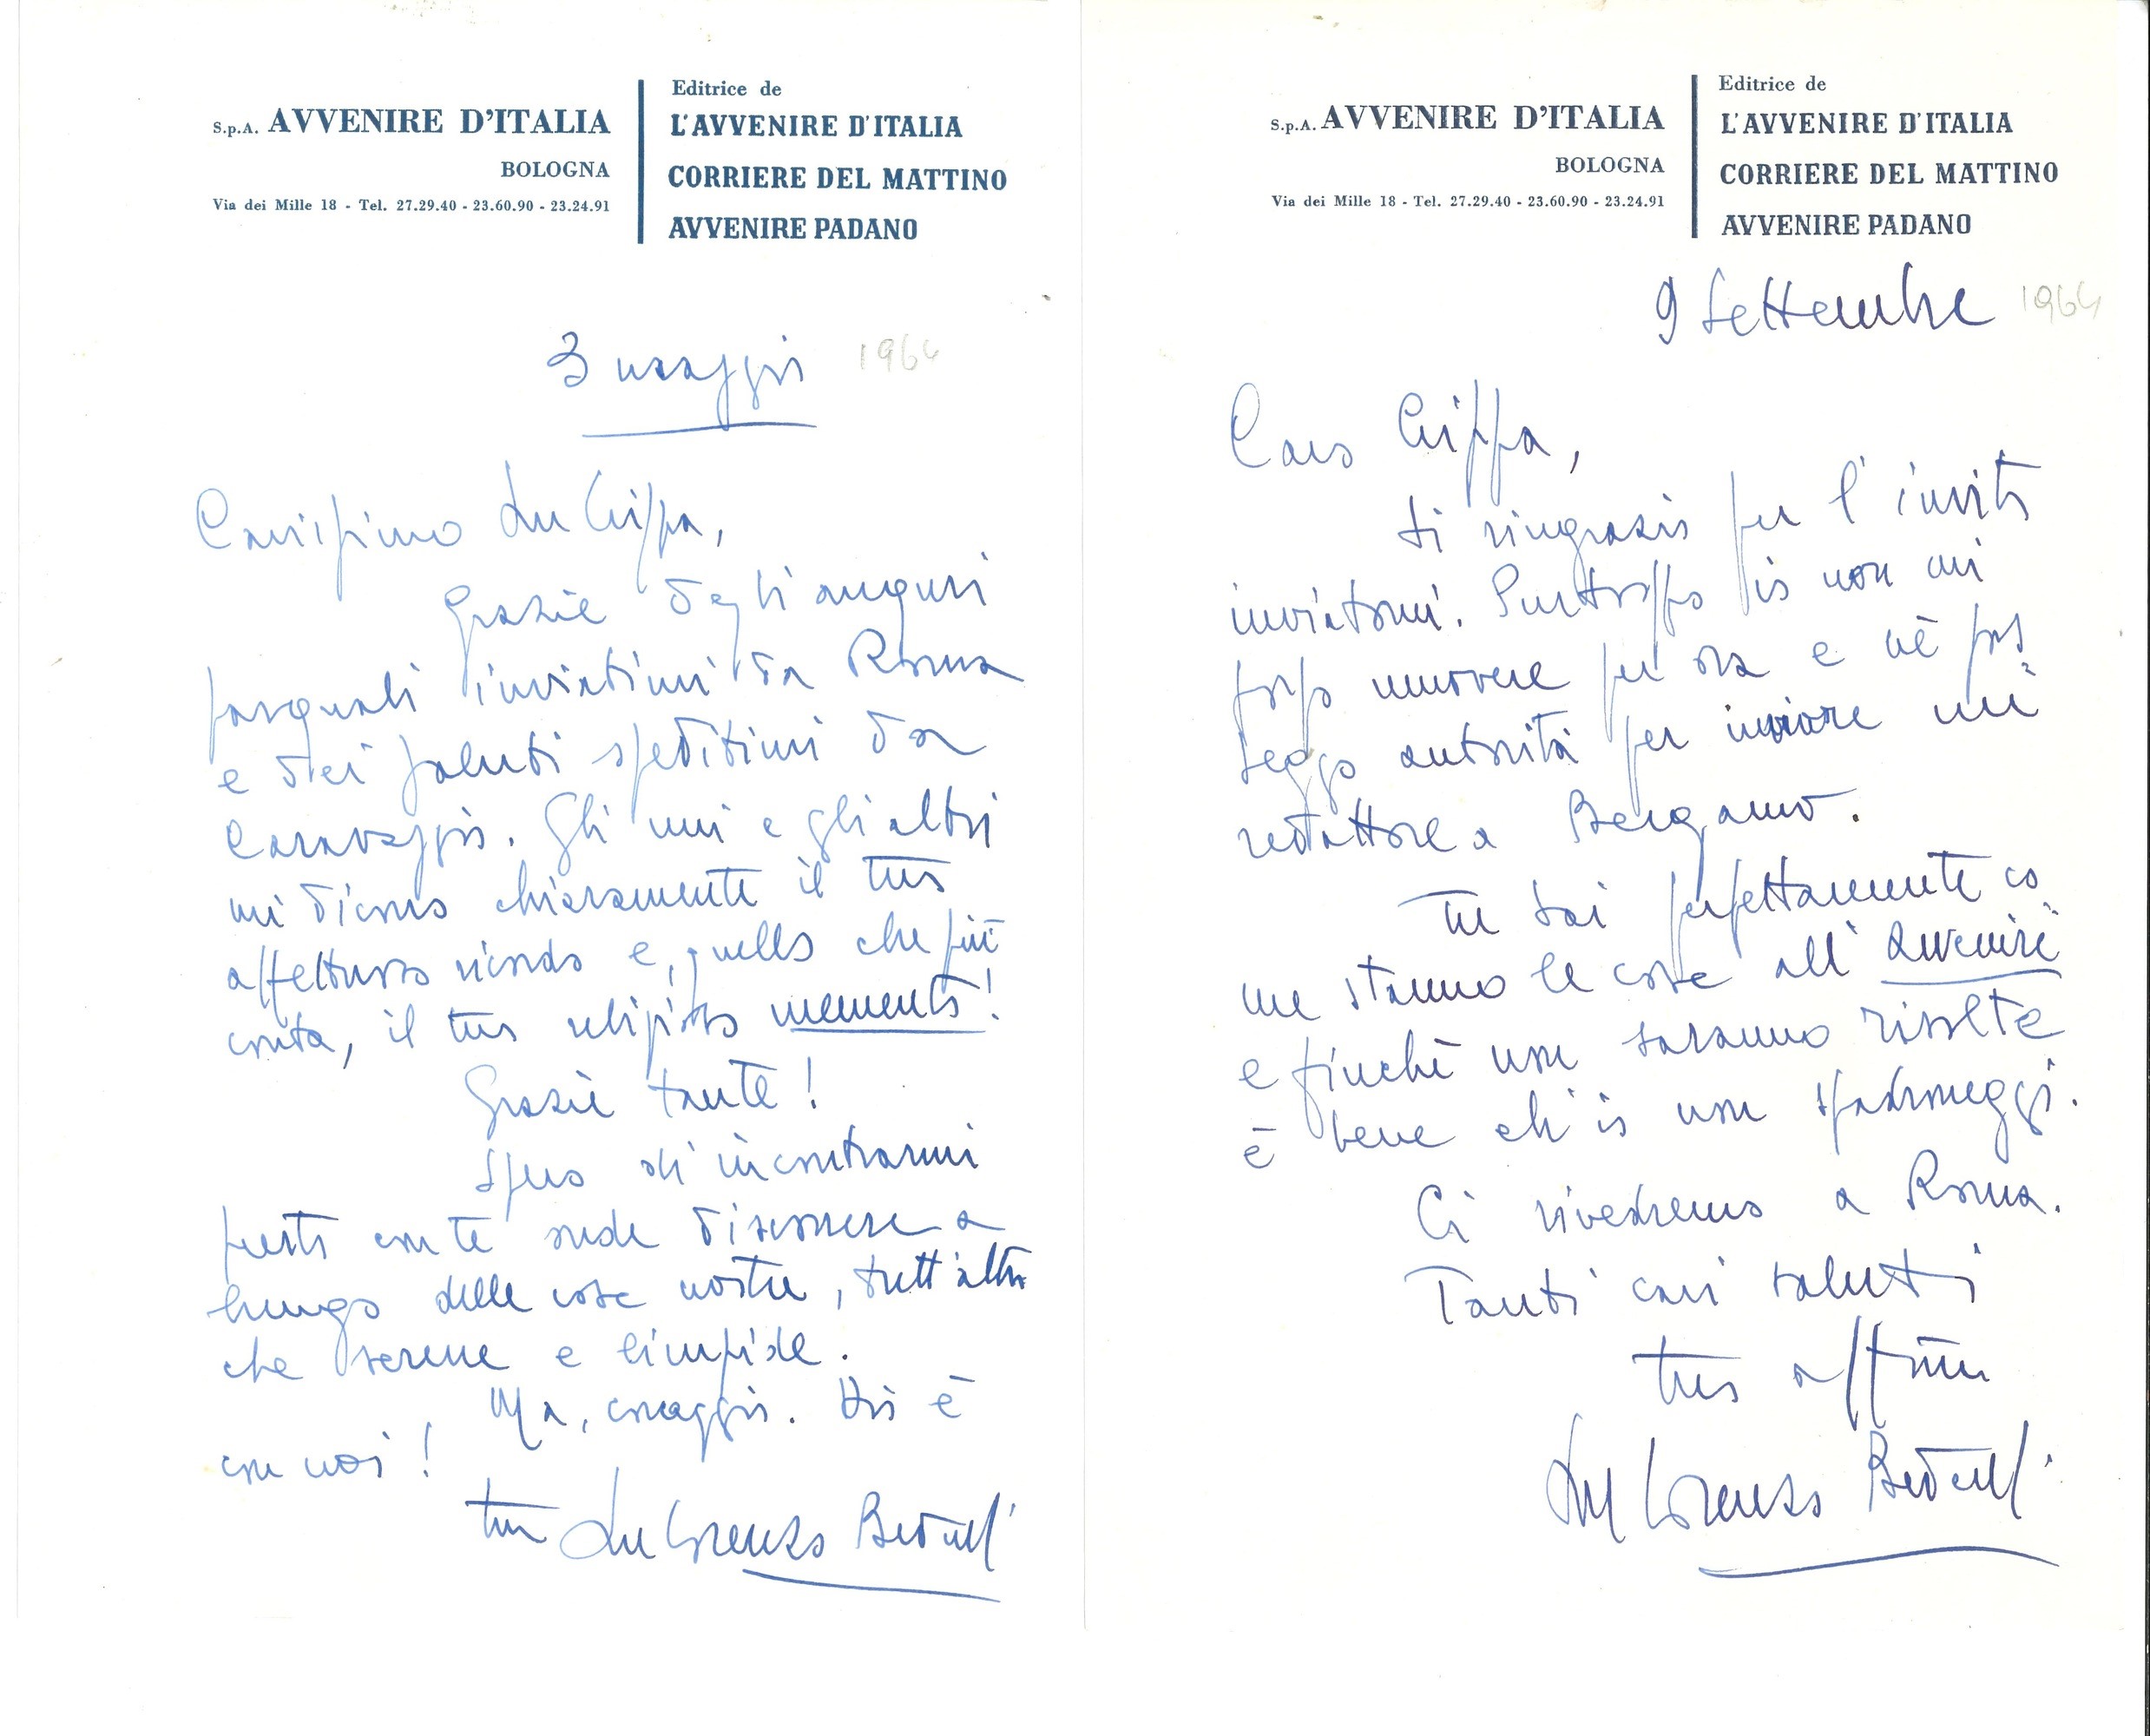 S.p.A. AVVENIRE D'ITALIA
BOLOGNA
Via dei Mille 18 - Tel. 27.29.40 - 23.60.90 - 23.24.91
Editrice de
L'AVVENIRE D'ITALIA
CORRIERE DEL MATTINO
AVVENIRE PADANO
3 maggio 1964
Carissimo Don Cippa,
Grazie degli auguri
pasquali inviatimi da Roma
e dei saluti speditimi da
Caravaggio. Gli uni e gli altri
mi dicono chiaramente il tuo
affettuoso ricordo e, quello che più
conta, il tuo religioso memento!
Grazie tante!
Spero di incontrarmi
presto con te onde discorrere a
lungo delle cose nostre, tutt'altro
che serene e limpide.
Ma, coraggio. Dio è
con noi!
tuo Don Lorenzo Bedeschi
S.p.A. AVVENIRE D'ITALIA
BOLOGNA
Via dei Mille 18 - Tel. 27.29.40 - 23.60.90 - 23.24.91
Editrice de
L'AVVENIRE D'ITALIA
CORRIERE DEL MATTINO
AVVENIRE PADANO
9 Settembre 1964
Caro Cippa,
ti ringrazio per l'invito
inviatomi. Purtroppo io non mi
posso muovere per ora e nè pos
seggo autorità per inviare un
redattore a Bergamo.
Tu sai perfettamente co
me stanno le cose all'Avvenire
e finchè non saranno risolte
è bene ch'io non spadroneggi.
Ci rivedremo a Roma.
Tanti cari saluti
tuo aff.mo
Don Lorenzo Bedeschi